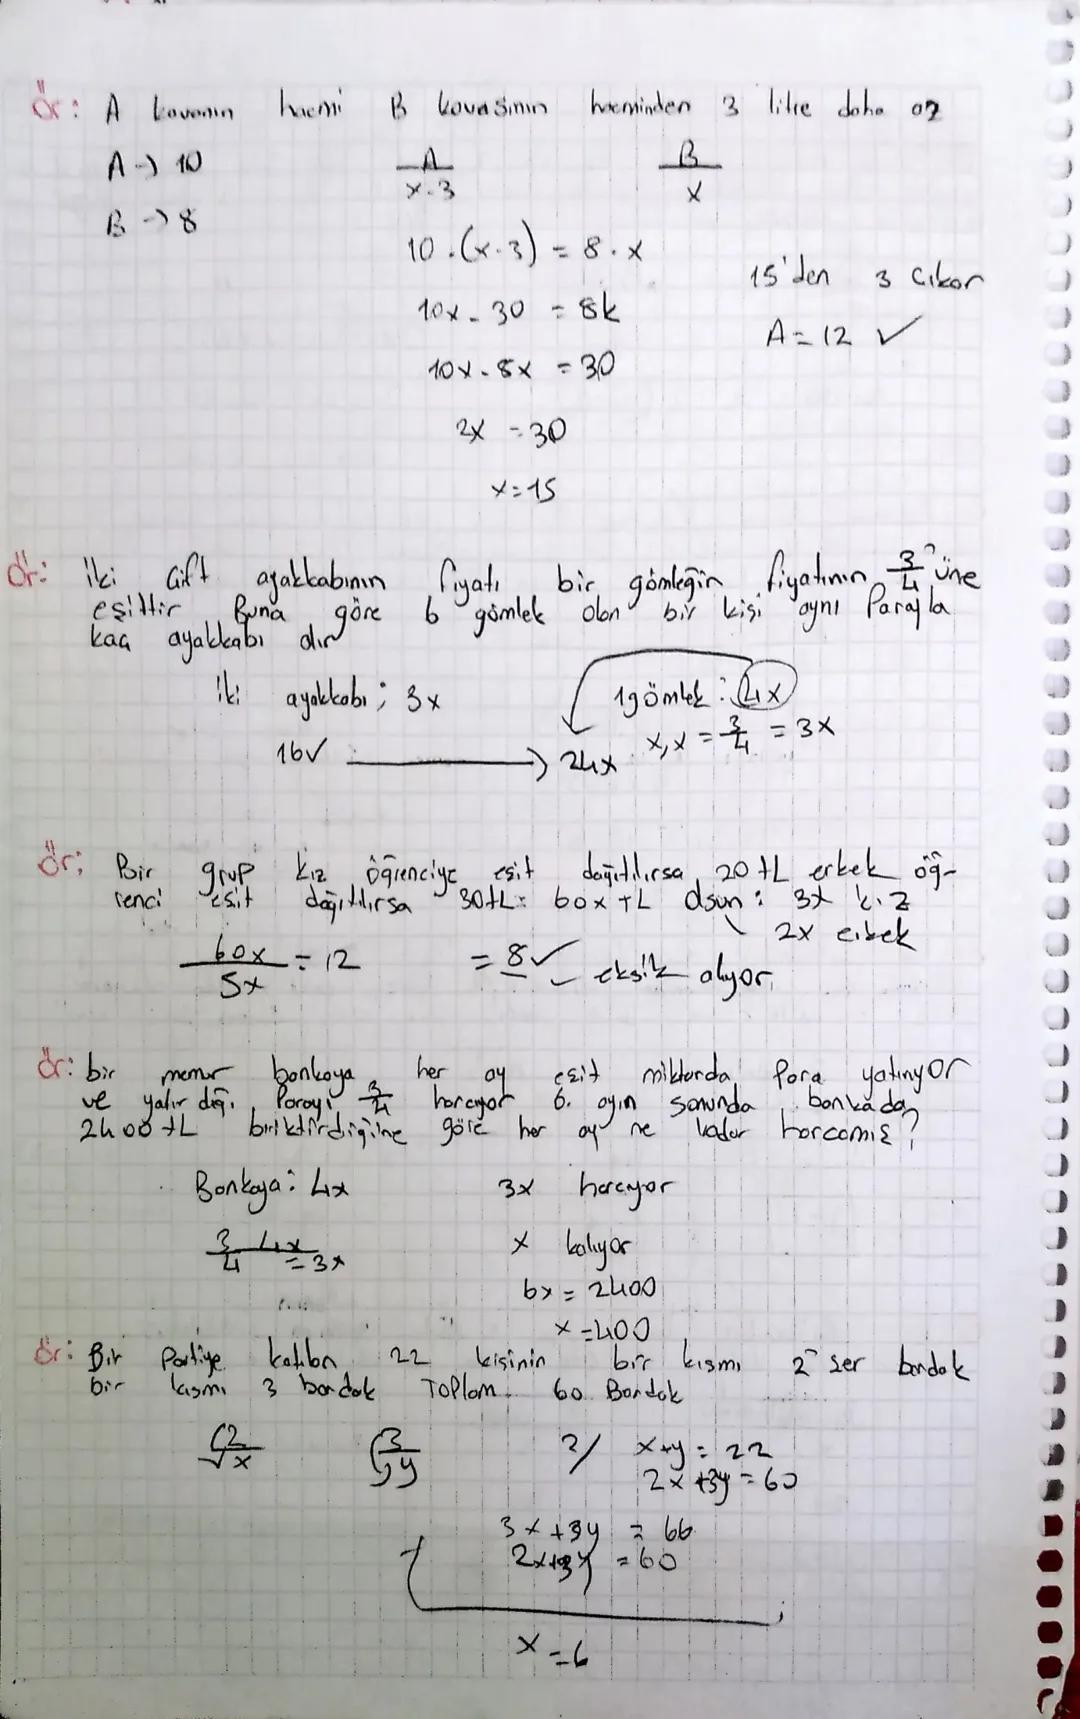 Ör: A kovanın hacmi B kovasının hacminden 3 litre daha az
A → 10
A
B
x-3
x
B → 8
10.(x-3) = 8.x
15'den 3 Çıkar
10x - 30 = 8k
A = 12 ✓
10x - 8x = 30
2x = 30
x = 15
Ör: İki Çift ayakkabının fiyatı bir gömleğin fiyatının 3/4 üne
eşittir Buna göre 6 gömlek alan bir kişi aynı Parayla
kaç ayakkabı alır
İki ayakkabı; 3x
1 gömlek: 4x
x,x = 3/4 = 3x
16 ✓ → 24x
Ör: Bir grup kız öğrenciye eşit dağıtılırsa 20 tL erkek öğ-
renci eşit dağıtılırsa 30tL: 60x TL Olsun: 3x kız
2x erkek
60x/5x = 12 = 8 ✓ eksik alıyor.
Ör: bir memur bankaya her ay eşit miktarda Para yatırıyor
ve yatırdığı Parayı 3/4 harcıyor 6. ayın sonunda bankadan
2400 tL biriktirdiğine göre her ay ne kadar harcamış?
Bankaya: 4x 3x harcıyor
3/4 4x = 3x
x kalıyor
6x = 2400
x = 400
Ör: Bir Partiye katılan 22 kişinin bir kısmı 2 ser bardak
bir kısmı 3 bardak Toplam 60 Bardak
2/x 3/y
2/ x+y = 22
2x+3y = 60
3x+3y = 66
2x+3y = 60
x = 6